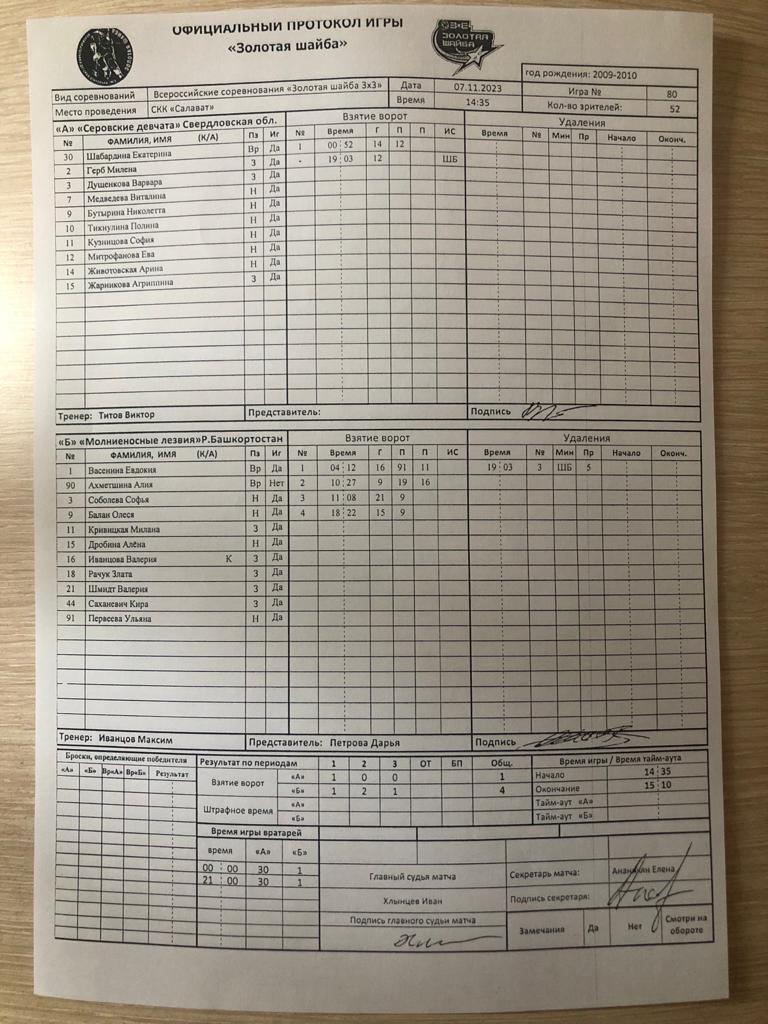 ОФИЦИАЛЬНЫЙ ПРОТОКОЛ ИГРЫ
«Золотая шайба»
ЗОЛОТАЯ ШАЙБА
год рождения: 2009-2010
Вид соревнований Всероссийские соревнования «Золотая шайба 3х3» Дата 07.11.2023 Игра № 80
Место проведения СКК «Салават» Время 14:35 Кол-во зрителей: 52
«А» «Серовские девчата» Свердловская обл. Взятие ворот Удаления
№ ФАМИЛИЯ, ИМЯ (К/А) Пз Иг № Время Г П П ИС Время № Мин Пр Начало Оконч.
30 Шабардина Екатерина Вр Да 1 00 52 14 12
2 Герб Милена З Да - 19 03 12 ШБ
3 Душенкова Варвара З Да
7 Медведева Виталина Н Да
9 Бутырина Николетта Н Да
10 Тикиулина Полина Н Да
11 Кузницова София Н Да
12 Митрофанова Ева Н Да
14 Животовская Арина Н Да
15 Жарникова Агриппина З Да
Тренер: Титов Виктор Представитель: Подпись
«Б» «Молниеносные лезвия»Р.Башкортостан Взятие ворот Удаления
№ ФАМИЛИЯ, ИМЯ (К/А) Пз Иг № Время Г П П ИС Время № Мин Пр Начало Оконч.
1 Васенина Евдокия Вр Да 1 04 12 16 91 11 19 03 3 ШБ 5
90 Ахметшина Алия Вр Нет 2 10 27 9 19 16
3 Соболева Софья Н Да 3 11 08 21 9
9 Балан Олеся Н Да 4 18 22 15 9
11 Кривицкая Милана З Да
15 Дробина Алёна Н Да
16 Иванцова Валерия К З Да
18 Рачук Злата З Да
21 Шмидт Валерия З Да
44 Саханевич Кира З Да
91 Первеева Ульяна Н Да
Тренер: Иванцов Максим Представитель: Петрова Дарья Подпись
Броски, определяющие победителя Результат по периодам 1 2 3 ОТ БП Общ. Время игры / Время тайм-аута
«А» «Б» Вр«А» Вр«Б» Результат Взятие ворот «А» 1 0 0 1 Начало 14 35
«Б» 1 2 1 4 Окончание 15 10
Штрафное время «А» Тайм-аут «А»
«Б» Тайм-аут «Б»
Время игры вратарей
время «А» «Б»
00 00 30 1 Главный судья матча Секретарь матча: Елена
21 00 30 1
Хлынцев Иван Подпись секретаря:
Подпись главного судьи матча
Замечания Да Нет Смотри на обороте